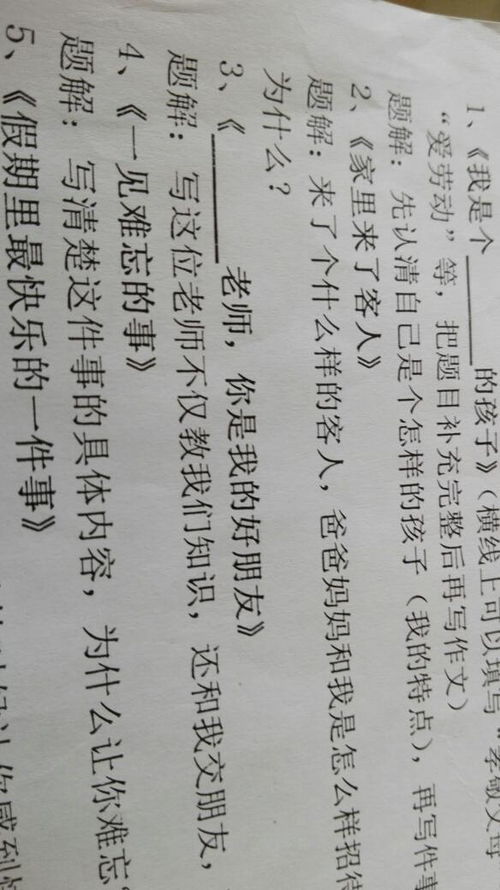 1、《我是个______的孩子》（横线上可以填写“孝敬父母
“爱劳动”等，把题目补充完整后再写作文）
题解：先认清自己是个怎样的孩子（我的特点），再写件事
2、《家里来了客人》
题解：来了个什么样的客人，爸爸妈妈和我是怎么样招待
为什么？
3、《______老师，你是我的好朋友》
题解：写这位老师不仅教我们知识，还和我交朋友，
4、《一见难忘的事》
题解：写清楚这件事的具体内容，为什么让你难忘
5、《假期里最快乐的一件事》
让你感到